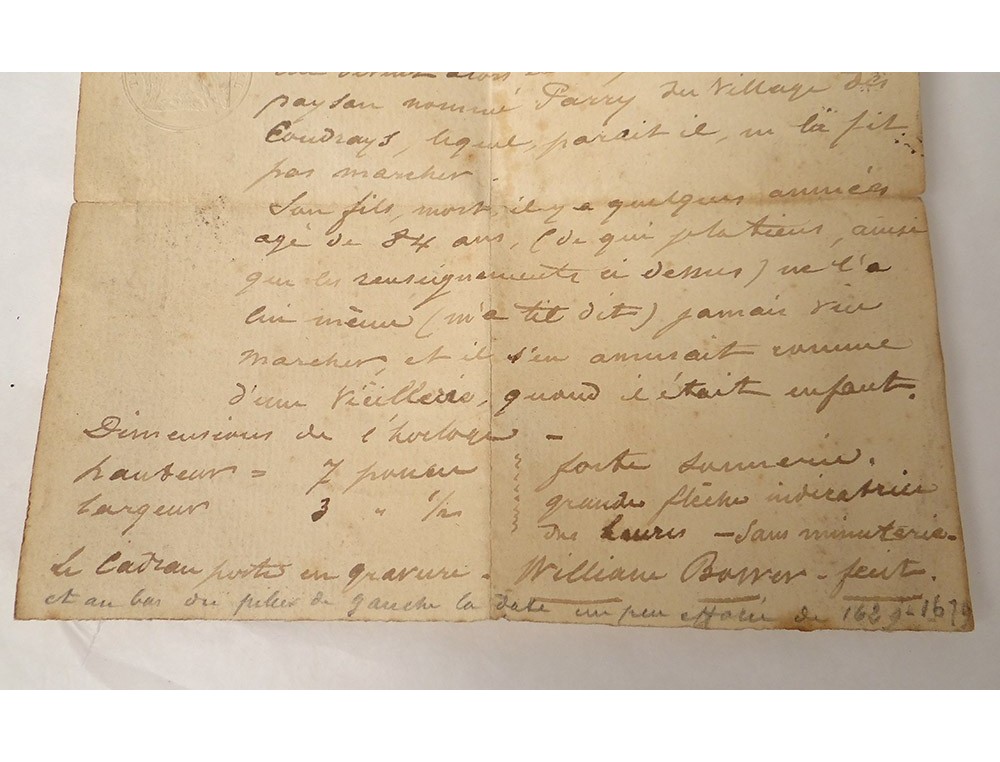 paysan nommé Parry du Village des
Coudrays, lequel, parait il, ne la fit
pas marcher
Son fils, mort, il y a quelques années
agé de 84 ans, (de qui je la tiens, ainsi
que les renseignements ci dessus) ne l'a
lui même (m'a til dit) jamais vue
marcher, et il s'en amusait comme
d'une vieillerie, quand il était enfant.
Dimensions de l'horloge -
hauteur = 7 pouces
largeur 3 " 1/2
forte sonnerie.
grande flêche indicatrice
des heures - sans minuterie -
Le Cadran porte en gravure - William Bower - fecit.
et au bas du pilier de gauche la date un peu effacée de 1629 - 1679